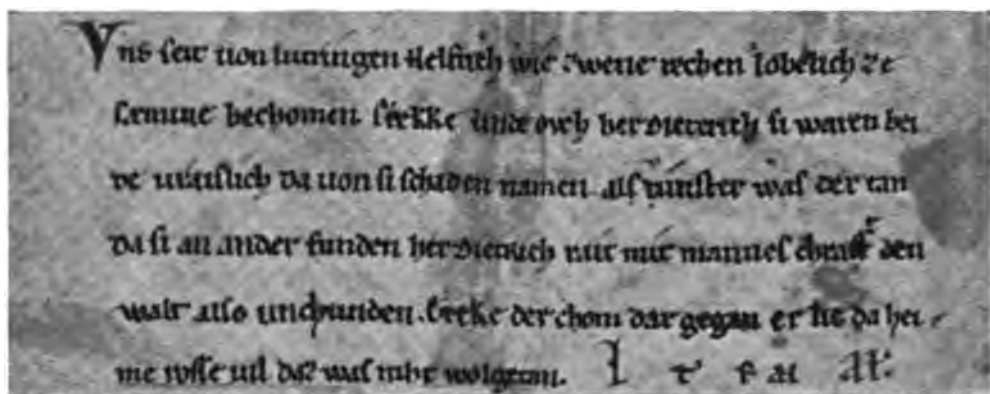 Vns seit uon lutringen Helfrich wie zwene rechen lobelich ze
semine bechomen erekke unde ouch her dieterich si waren bei
de uraislich da uon si schaden namen als uinster was der tan
da si an ander funden her dietrich rait mit mannes chraft den
walt also unchunden. Ereke der chom dar gegan er lie da hei
me rosse uil daz was niht wolgetan.